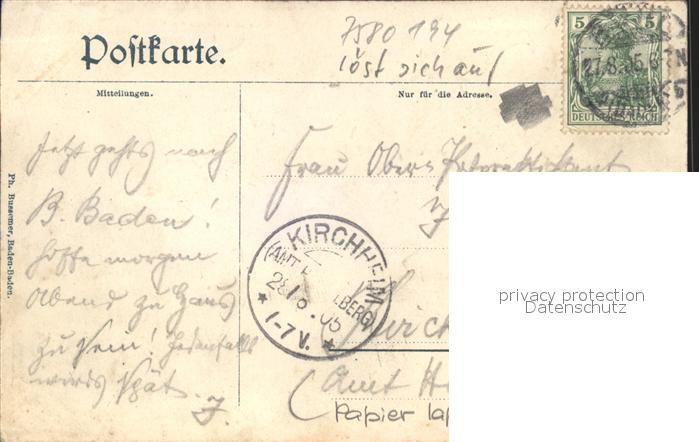 7580 194
löst sich auf
Postkarte.
5 5
27.8.05.
DEUTSCHES REICH
Mitteilungen.
Nur für die Adresse.
Jetzt gehts nach
B. Baden!
hoffe morgen
Abend zu Haus
zu sein! Jedenfalls
wirds spät. J.
Frau Ober
KIRCHHEIM
(AMT LBERG)
28. 8. 05
1-7 V.
Kirch
(Amt H
Papier
Ph. Bussemer, Baden-Baden.
privacy protection
Datenschutz